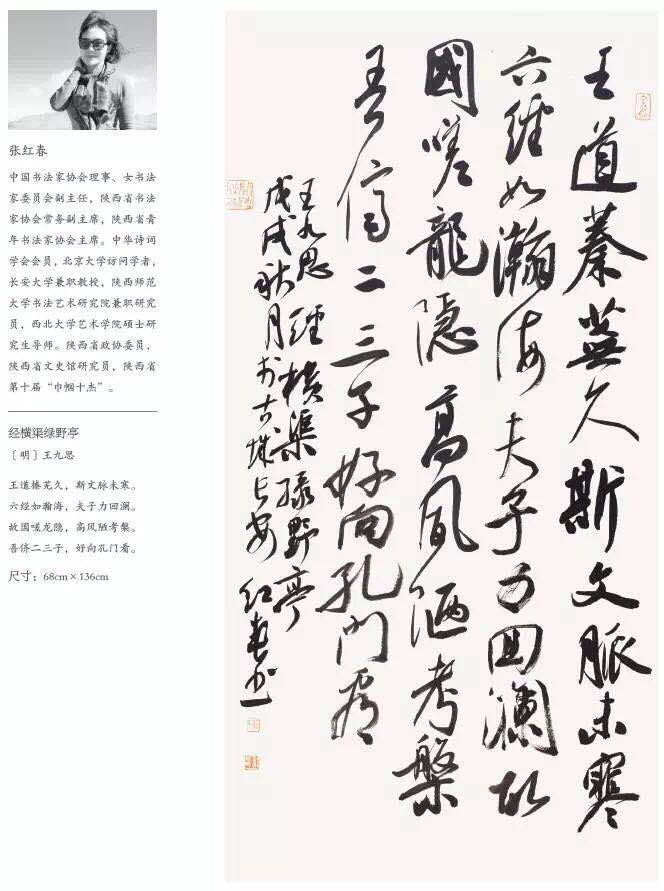 张红春
中国书法家协会理事、女书法
家委员会副主任，陕西省书法
家协会常务副主席，陕西省青
年书法家协会主席。中华诗词
学会会员，北京大学访问学者，
长安大学兼职教授，陕西师范
大学书法艺术研究院兼职研究
员，西北大学艺术学院硕士研
究生导师。陕西省政协委员，
陕西省文史馆研究员，陕西省
第十届“巾帼十杰”。
经横渠绿野亭
［明］王九思
王道榛芜久，斯文脉未寒。
六经如瀚海，夫子力回澜。
故国嗟龙隐，高风陋考槃。
吾侪二三子，好向孔门看。
尺寸：68cm×136cm
王道蓁芜久斯文脈未寒
六經如瀚海夫子力回瀾故
國嗟龍隐高風陋考槃
吾儕二三子好向孔门看
王九思經横渠緑野亭
戊戌秋月书古城长安红春书